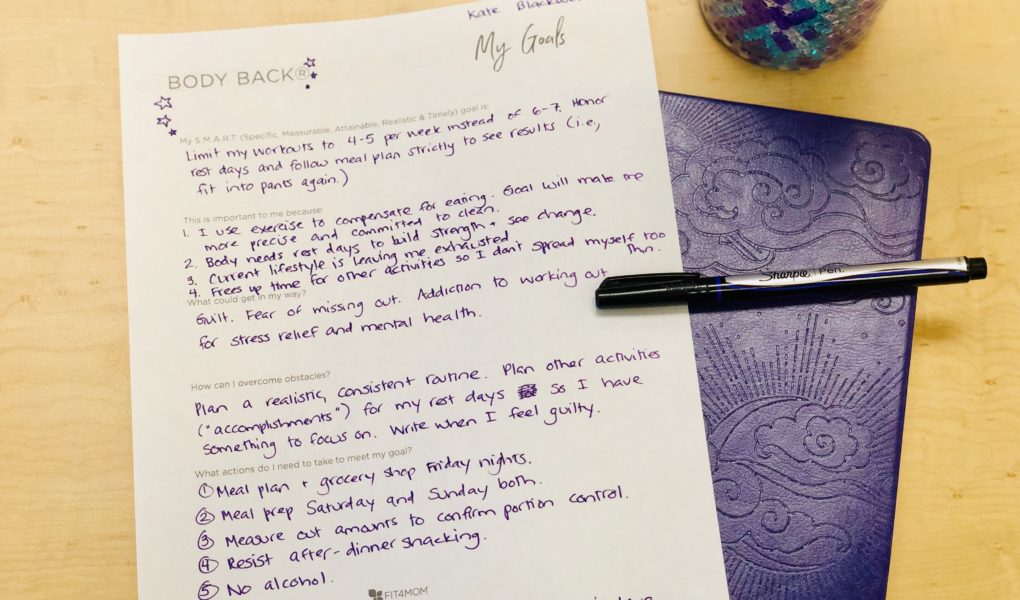 Kate
My Goals
BODY BACK®
My S.M.A.R.T. (Specific, Measurable, Attainable, Realistic & Timely) goal is:
Limit my workouts to 4-5 per week instead of 6-7. Honor
rest days and follow meal plan strictly to see results (i.e.,
fit into pants again.)
This is important to me because:
1. I use exercise to compensate for eating. Goal will make me
more precise and committed to clean.
2. Body needs rest days to build strength + see change.
3. Current lifestyle is leaving me exhausted.
4. Frees up time for other activities so I don't spread myself too
thin.
What could get in my way?
Guilt. Fear of missing out. Addiction to working out
for stress relief and mental health.
How can I overcome obstacles?
Plan a realistic, consistent routine. Plan other activities
("accomplishments") for my rest days so I have
something to focus on. Write when I feel guilty.
What actions do I need to take to meet my goal?
① Meal plan + grocery shop Friday nights.
② Meal prep Saturday and Sunday both.
③ Measure out amounts to confirm portion control.
④ Resist after-dinner snacking.
⑤ No alcohol.
FIT4MOM
Sharpie Pen.